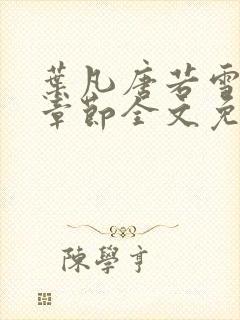 葉凡唐若雪
章節全文免
陳學亨